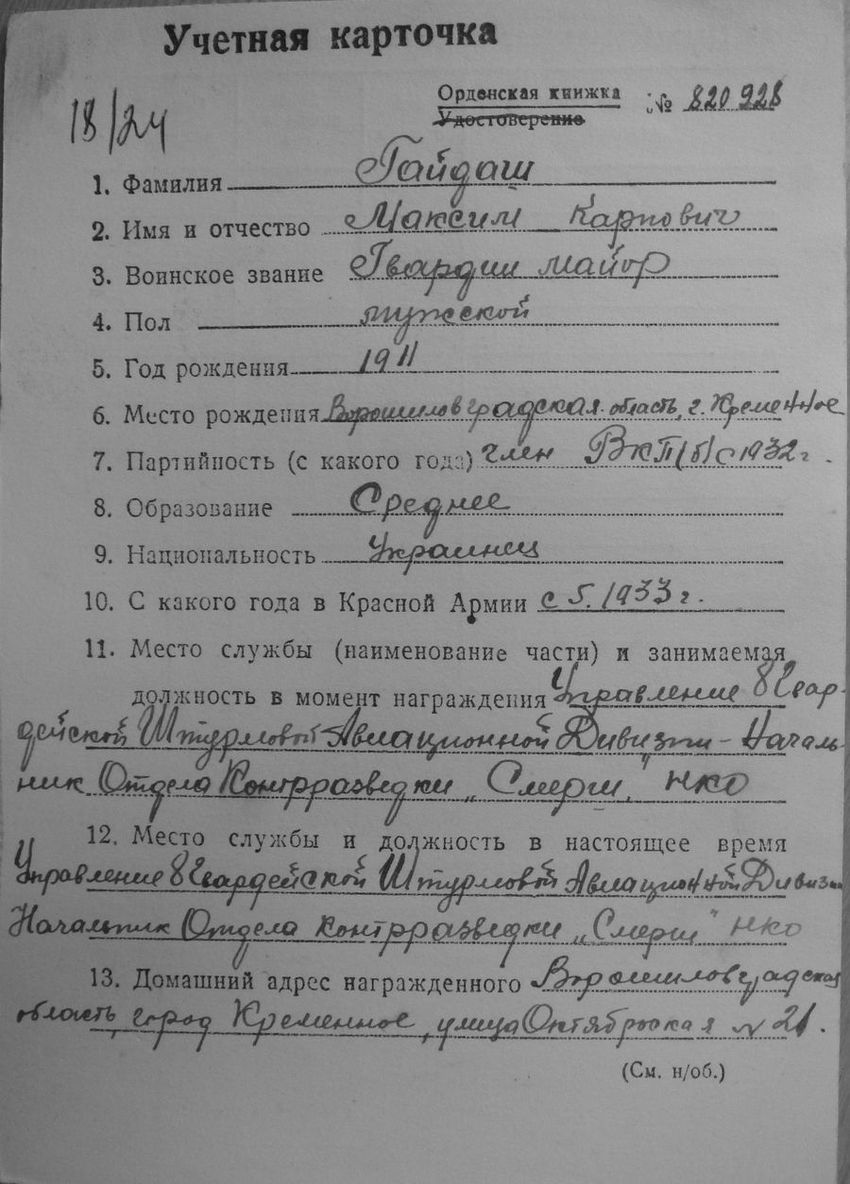 Учетная карточка
18/24
Орденская книжка № 820928
Удостоверение
1. Фамилия Гайдаш
2. Имя и отчество Максим Карпович
3. Воинское звание Гвардии майор
4. Пол мужской
5. Год рождения 1911
6. Место рождения Ворошиловградская область, г. Кременное
7. Партийность (с какого года) член ВКП(б) с 1932 г.
8. Образование Среднее
9. Национальность Украинец
10. С какого года в Красной Армии с 5. 1933 г.
11. Место службы (наименование части) и занимаемая
должность в момент награждения Управление 8 Гвар-
дейской Штурмовой Авиационной Дивизии - Началь-
ник Отдела Контрразведки „Смерш" НКО
12. Место службы и должность в настоящее время
Управление 8 Гвардейской Штурмовой Авиационной Дивизии
Начальник Отдела Контрразведки „Смерш" НКО
13. Домашний адрес награжденного Ворошиловградская
область, город Кременное, улица Октябрьская № 21.
(См. н/об.)